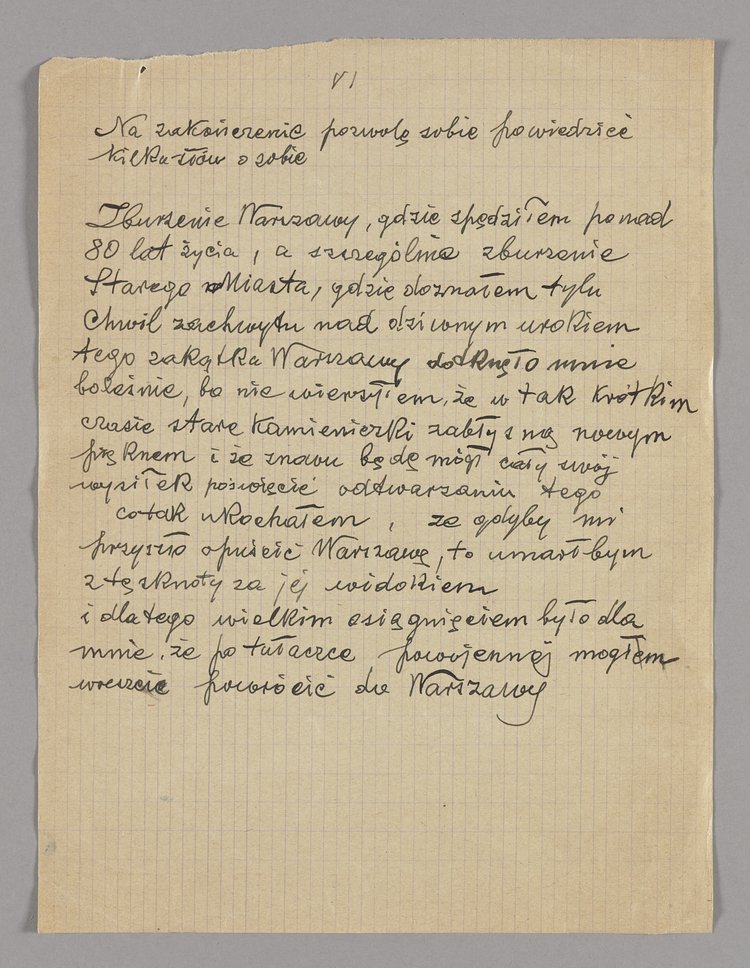 VI
Na zakończenie pozwolę sobie powiedzieć
kilka słów o sobie
Zburzenie Warszawy, gdzie spędziłem ponad
80 lat życia, a szczególnie zburzenie
Starego Miasta, gdzie doznałem tylu
chwil zachwytu nad dziwnym urokiem
tego zakątka Warszawy dotknęło mnie
boleśnie, bo nie wierzyłem, że w tak krótkim
czasie stare kamieniczki zabłysną nowym
pięknem i że znowu będę mógł cały swój
wysiłek poświęcić odtwarzaniu tego
co tak ukochałem, że gdyby mi
przyszło opuścić Warszawę, to umarłbym
z tęsknoty za jej widokiem
i dlatego wielkim osiągnięciem było dla
mnie, że po tułaczce powojennej mogłem
wreszcie powrócić do Warszawy